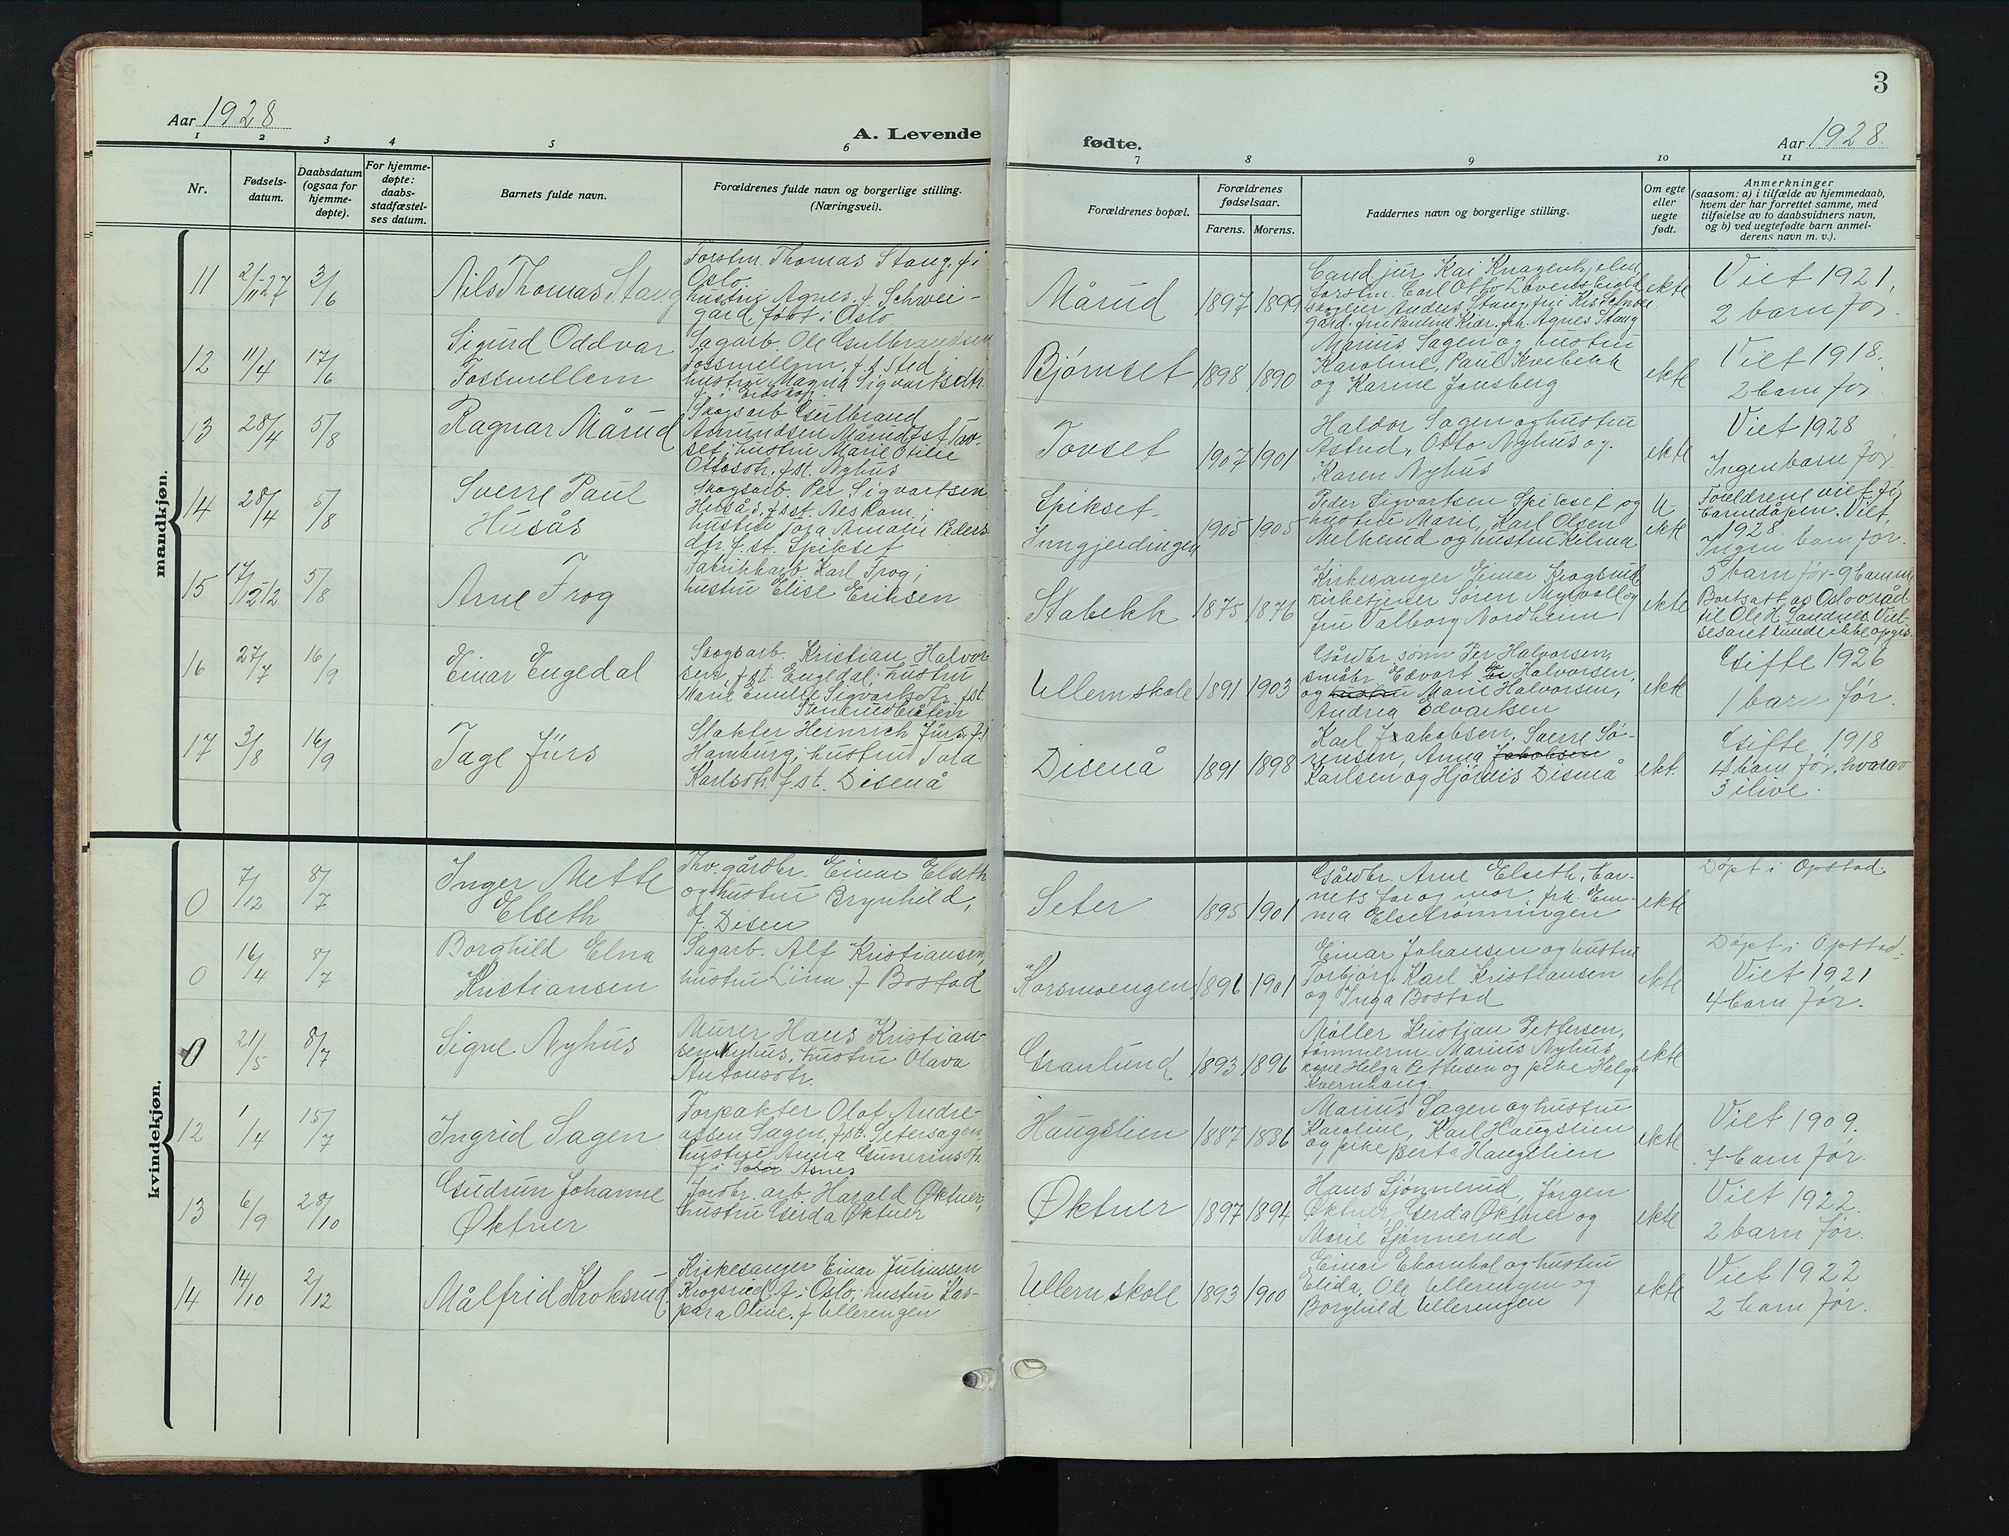 3
Aar 1928
A. Levende
fødte.
Aar 1928.
1 2 3 4 5 6
7 8 9 10 11
Nr.
Fødsels-
datum.
Daabsdatum
(ogsaa for
hjemme-
døpte).
For hjemme-
døpte:
daabs-
stadfæstel-
ses datum.
Barnets fulde navn.
Forældrenes fulde navn og borgerlige stilling.
(Næringsvei).
Forældrenes bopæl.
Forældrenes
fødselsaar.
Farens. Morens.
Faddernes navn og borgerlige stilling.
Om egte
eller
uegte
født.
Anmerkninger
(saasom: a) i tilfælde av hjemmedaab,
hvem der har forrettet samme, med
tilføielse av to daabsvidners navn,
og b) ved uegtefødte barn anmel-
derens navn m. v.).
mandkjøn.
11
2/11-27
3/6
Nils Thomas Stang
Forstm. Thomas Stang, f. i
Oslo,
hustru Agnes, f. Schwei-
gård, født i Oslo
Mårud
1897 1899
Cand jur Kai Knagenhjelm
forstm. Carl Otto Løvenskiold
gård. fru Pauline Kiær. frk. Agnes Stang
ekte
Viet 1921,
2 barn før.
12
11/4
17/6
Sigurd Oddvar
Fossmellem
Sagarb. Ole Gulbrandsen
Fossmellem, f. sted,
hustru Magna Sigvartsdtr.
f. i Eidskog.
Bjørnset
1898 1890
Marius Sagen og hustru
Karoline, Paul Kvebekk
og Karine Jonsberg
ekte
Viet 1918.
2 barn før.
13
28/4
5/8
Ragnar Mårud
Skogsarb Gulbrand
Amundsen Mårud f. st. Tov-
set, hustru Marie Otilie
Ottosdtr. f. st. Nyhus
Tovset
1907 1901
Haldor Sagen og hustru
Astrid, Otto Nyhus og
Karen Nyhus
ekte
Viet 1928
Ingen barn før
14
28/4
5/8
Sverre Paul
Husås
Skogsarb. Per Sigvartsen
Husås, f. st. Nes kom.;
hustru Tora Amalie Peders
dtr. f. st. Spikset
Spikset-
1905 1905
Peder Sigvartsen Spikset og
hustru Marie, Karl Olsen
Melbund og hustru Hilma
U
ekte
Foreldrene viet før
barnedåpen. Viet
1928
Ingen barn før.
15
17/12-12
5/8
Arne Frog
Fabrikkarb Karl Frog;
hustru Elise Eriksen
Stabekk
1875 1876
Kirkesanger Einar Krogsrud
kirketjener Søren Myrvoll og
fru Valborg Nordheim
ekte
5 barn før - 9 barn m
Bortsatt av Oslo v.råd
til Ole H. Sandnes. Viel-
sesaret kunde ikke opgis.
16
27/7
16/9
Einar Engedal
Skogsarb. Kristian Halvor
sen, f. st. Engedal; hustru
Marie Emilie Sigvartsdtr. f. st.
Ullern skole
1891 1903
Gårdbr. sønn Per Halvorsen,
småbr. Edvart Halvorsen,
og hustru Marie Halvorsen,
Andrea Edvartsen
ekte
Gifte 1926
1 barn før.
17
3/8
16/9
Tage Jürs
Slakter Heinrich Jürs, f. i
Hamburg, hustru Tola
Karlsdtr. f. st. Disenå
Disenå
1891 1898
Karl Jakobsen, Sverre Sø-
rensen, Anna Jakobsen
Karlsen og Hjørdis Disenå
ekt.
Gifte 1918
4 barn før, hvorav
3 i live.
kvindekjøn.
0
7/12
8/7
Inger Mette
Elseth
Thv. gårdbr. Einar Elseth
og hustru Brynhild,
f. Disen
Seter
1895 1901
Gårdbr. Arne Elseth, bar-
nets far og mor, frk. Em-
ma Elsetrønningen
ekte
Døpt i Opstad
0
16/4
8/7
Borghild Elna
Kristiansen
Sagarb. Alf Kristiansen,
hustru Lina f. Bostad
Korsmoengen
1896 1901
Einar Johansen og hustru
Torbjørg, Karl Kristiansen
og Inga Bostad
ekte
Døpt i Opstad.
Viet 1921
4 barn før.
0
21/5
8/7
Signe Nyhus
Murer Hans Kristian-
sen Nyhus, hustru Olava
Antonsdtr.
Granlund
1893 1896
Møller Kristian Pettersen,
tømmerm. Marius Nyhus
kone Helga Pettersen og pike Helga
Kvernhaug.
ekte
12
1/4
15/7
Ingrid Sagen
Forpakter Olaf Andre-
assen Sagen, f. st. Setersagen,
hustru Anna Gunerinsdtr.
f. i Solør Åsnes
Haugslien
1887 1886
Marius Sagen og hustru
Karoline, Karl Haugslien
og pike Berta Haugslien
ekte
Viet 1909.
7 barn før.
13
6/9
28/10
Gudrun Johanne
Øktner
Jordbr. arb. Harald Øktner,
hustru Gerda Øktner
Øktner
1897 1894
Hans Sjønnerud, Jørgen
Øktner, Gerda Øktner og
Marie Sjønnerud
ekte
Viet 1922.
2 barn før.
14
14/10
2/12
Målfrid Kroksrud
Kirkesanger Einar Juliussen
Krogsrud f. i Oslo; hustru Kas-
para Oline, f. Ullerengen
Ullern skole
1893 1900
Einar Ekornhol og hustru
Elida, Ole Ullerengen og
Borghild Ullerengen
ekte
Viet 1922
2 barn før.